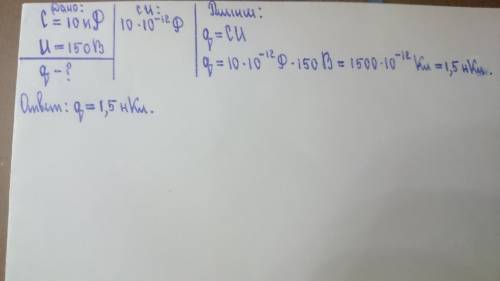 Дано:
C = 10 пФ
U = 150 В
q - ?
СИ:
10·10⁻¹² Ф
Решение:
q = CU
q = 10·10⁻¹² Ф · 150 В = 1500·10⁻¹² Кл = 1,5 нКл.
Ответ: q = 1,5 нКл.